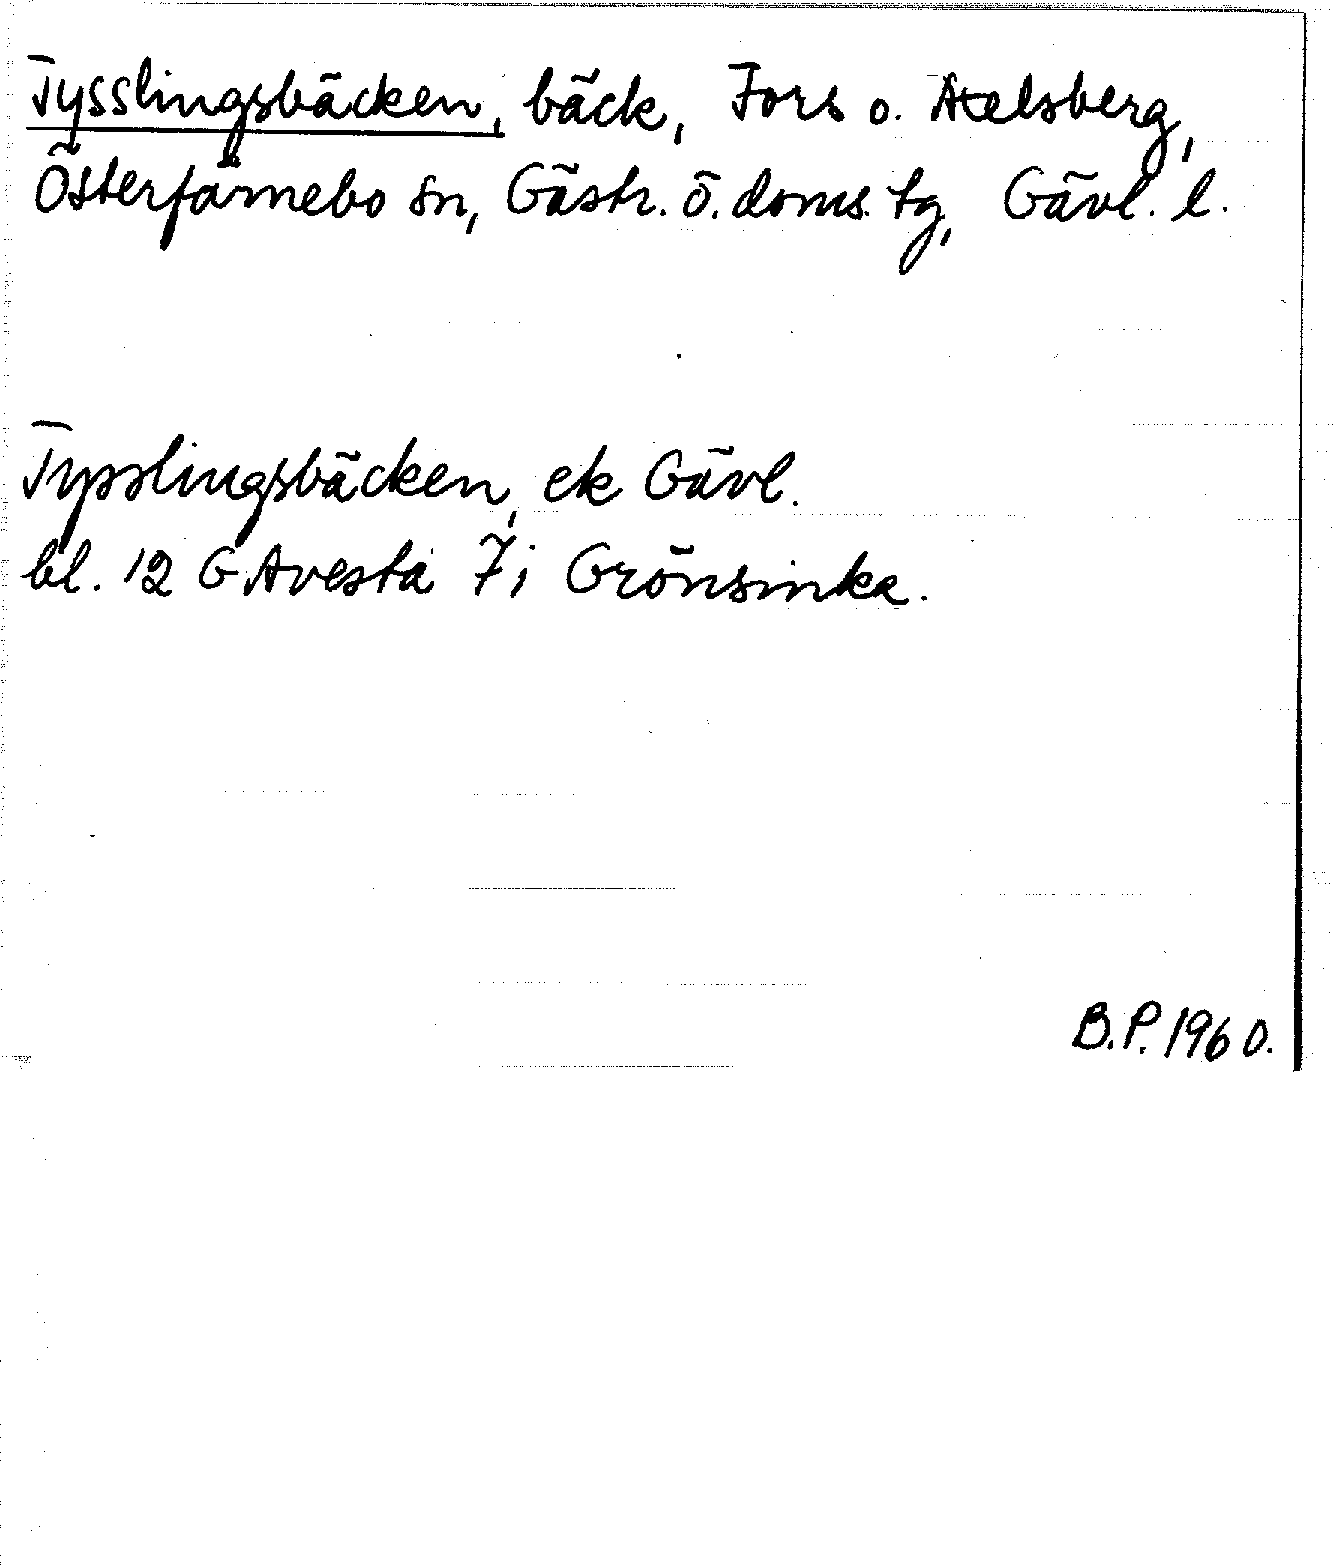 Tysslingsbäcken, bäck, Fors o. Axelsberg,
Österfärnebo sn, Gästr. ö. doms. tg, Gävl. l.
Tysslingsbäcken, ek Gävl.
bl. 12 G Avesta 7i Grönsinka.
B.P. 1960.